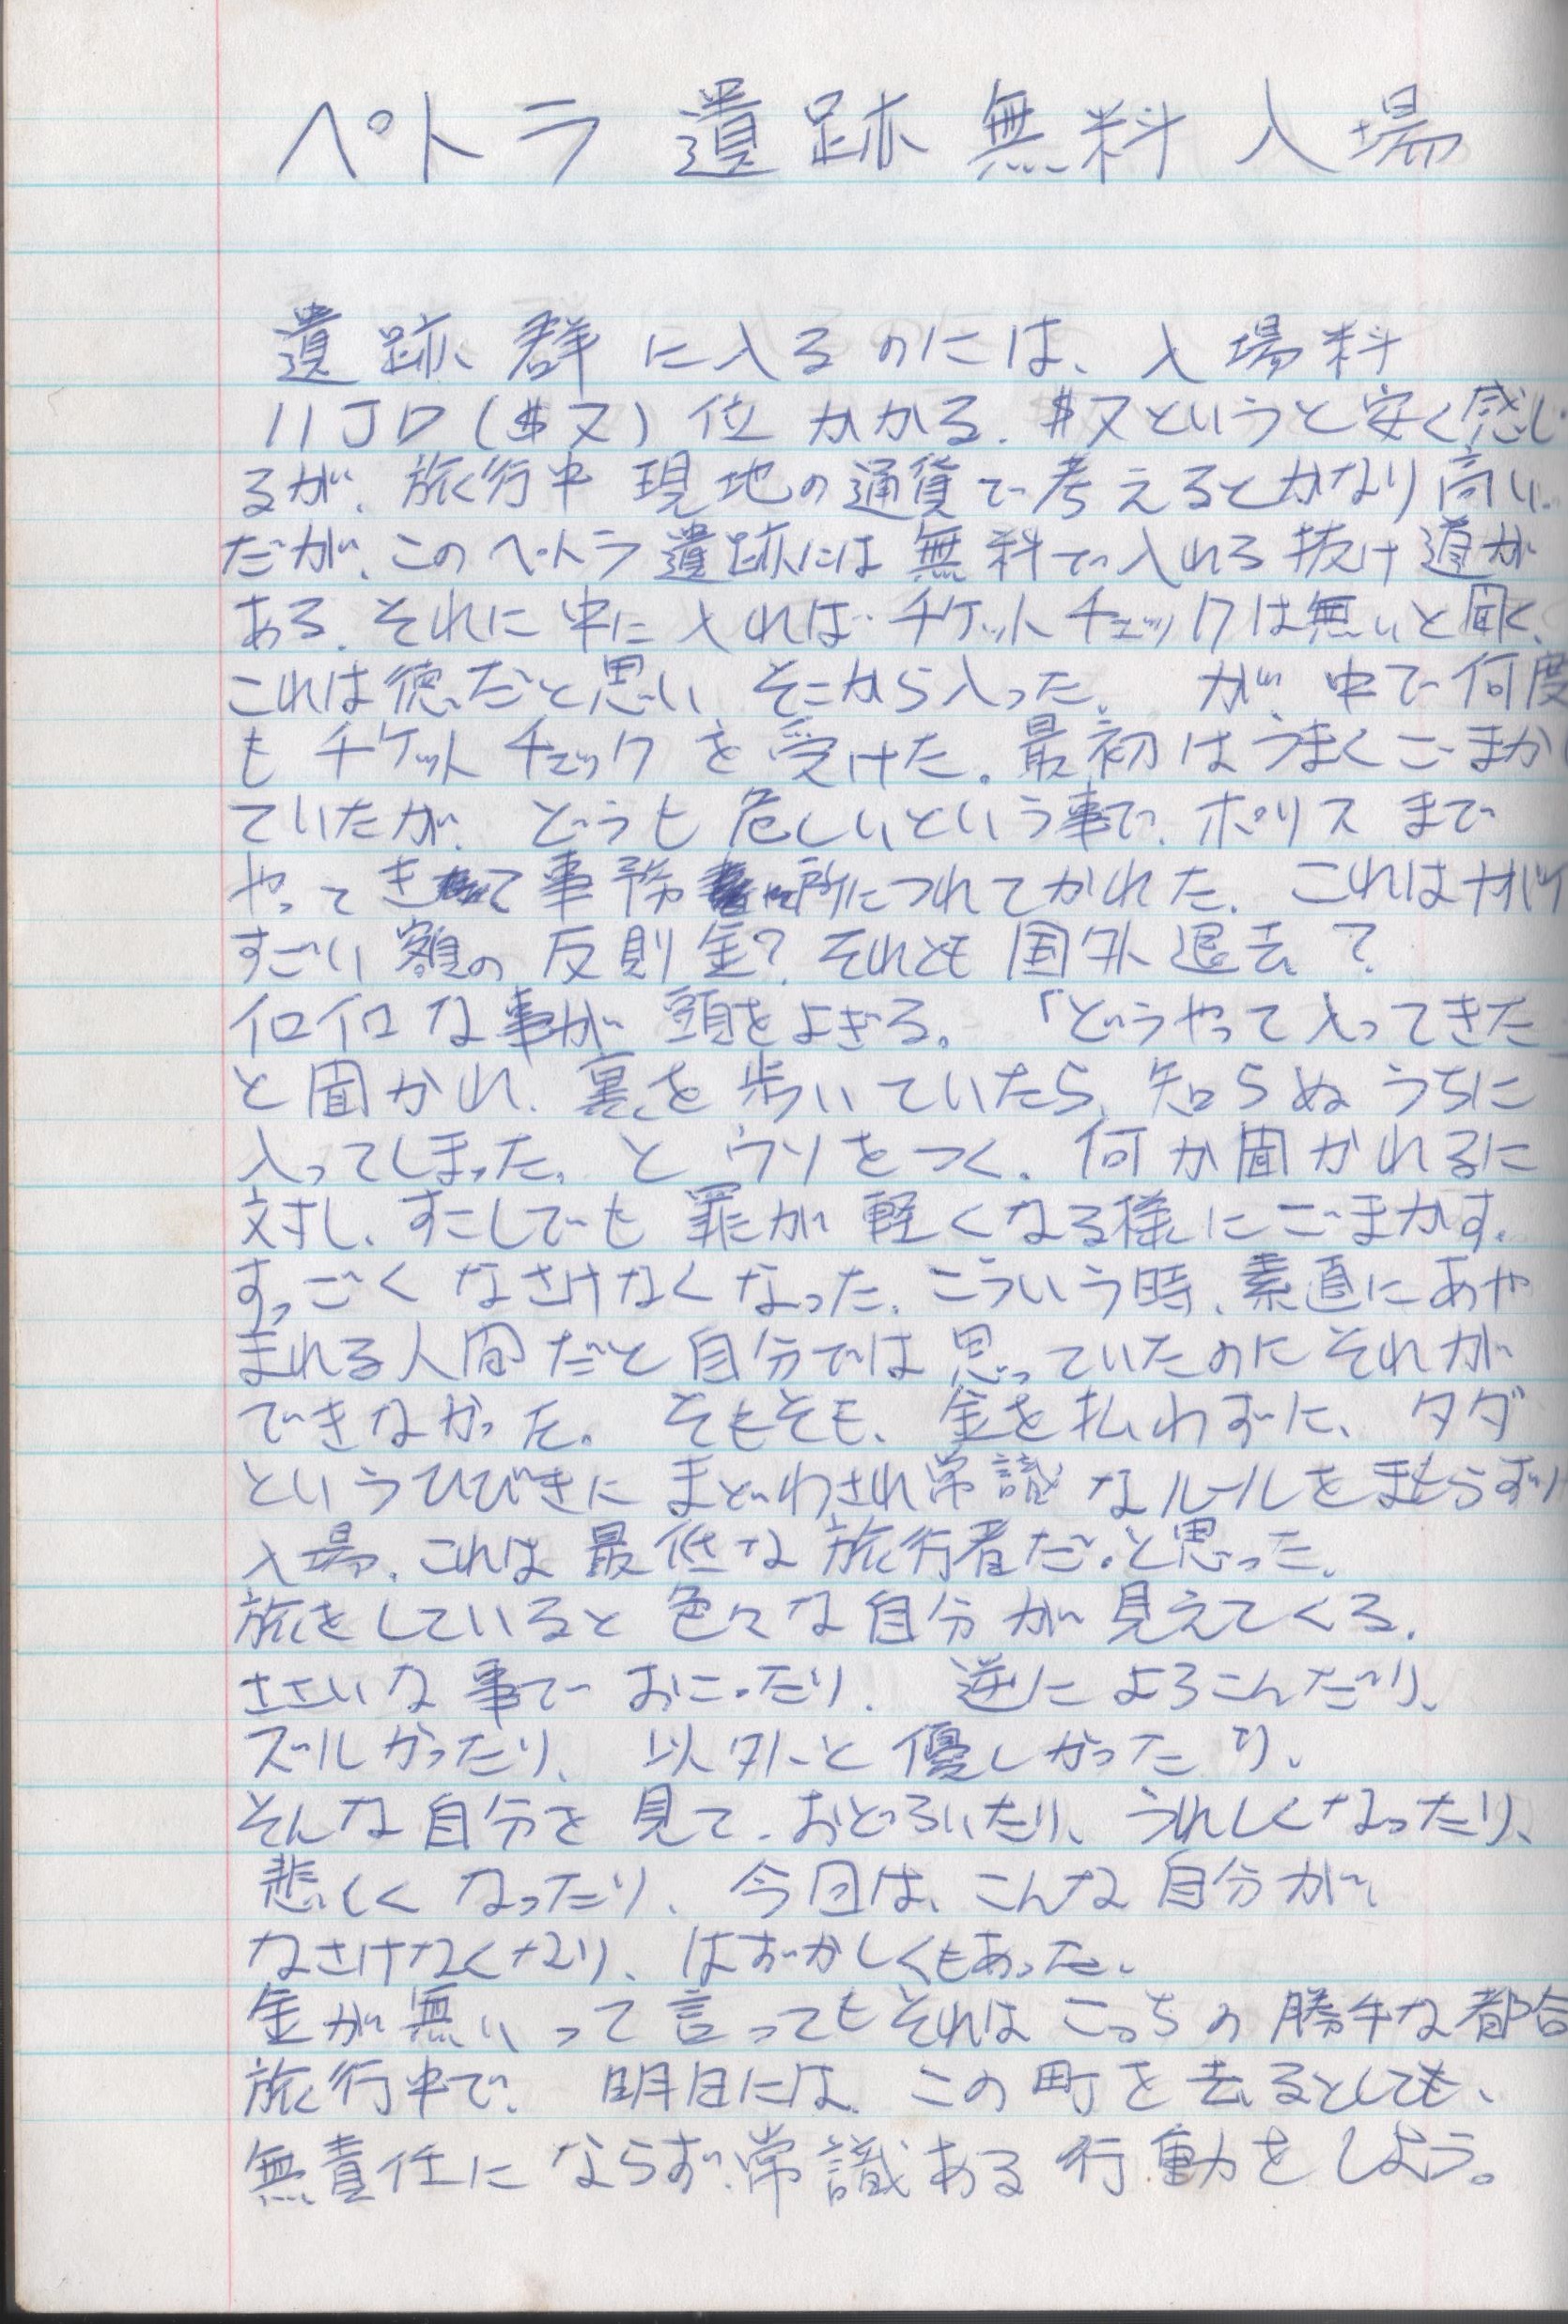 ペトラ遺跡無料入場
遺跡群に入るのには、入場料
11JD（$ ）位かかる。$ というと安く感じ
るが、旅行中現地の通貨で考えるとかなり高い。
だが、このペトラ遺跡には無料で入れる抜け道が
ある。それに中に入ればチケットチェックは無いと聞く、
これは徳だと思いそこから入った。が、中で何度
もチケットチェックを受けた。最初はうまくごまかし
ていたが、どうも危しいという事で、ポリスまで
やってきて事務所につれてかれた。これはヤバイ
すごい額の反則金？それとも国外退去？
イロイロな事が頭をよぎる。「どうやって入ってきた」
と聞かれ、裏を歩いていたら、知らぬうちに
入ってしまった。とウソをつく。何か聞かれるに
対し、すこしでも罪が軽くなる様にごまかす。
すっごくなさけなくなった。こういう時、素直にあや
まれる人間だと自分では思っていたのにそれが
できなかった。そもそも、金を払わずに、タダ
というひびきにまどわされ常識なルールをまもらずに
入場。これは最低な旅行者だ。と思った。
旅をしていると色々な自分が見えてくる。
ささいな事でおこったり、逆によろこんだり、
ズルかったり、以外と優しかったり、
そんな自分を見て、おどろいたり、うれしくなったり、
悲しくなったり、今回は、こんな自分が、
なさけなくなり、はずかしくもあった。
金が無いって言ってもそれはこっちの勝手な都合
旅行中で、明日には、この町を去るとしても、
無責任にならず、常識ある行動をしよう。